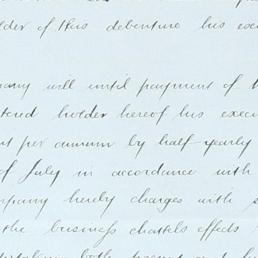 lder of this debenture his exec
pany will until payment of t
tered holder hereof his execu
nt per annum by half yearly
of July in accordance with
mpany hereby charges with s
the business chattels effects
both present and